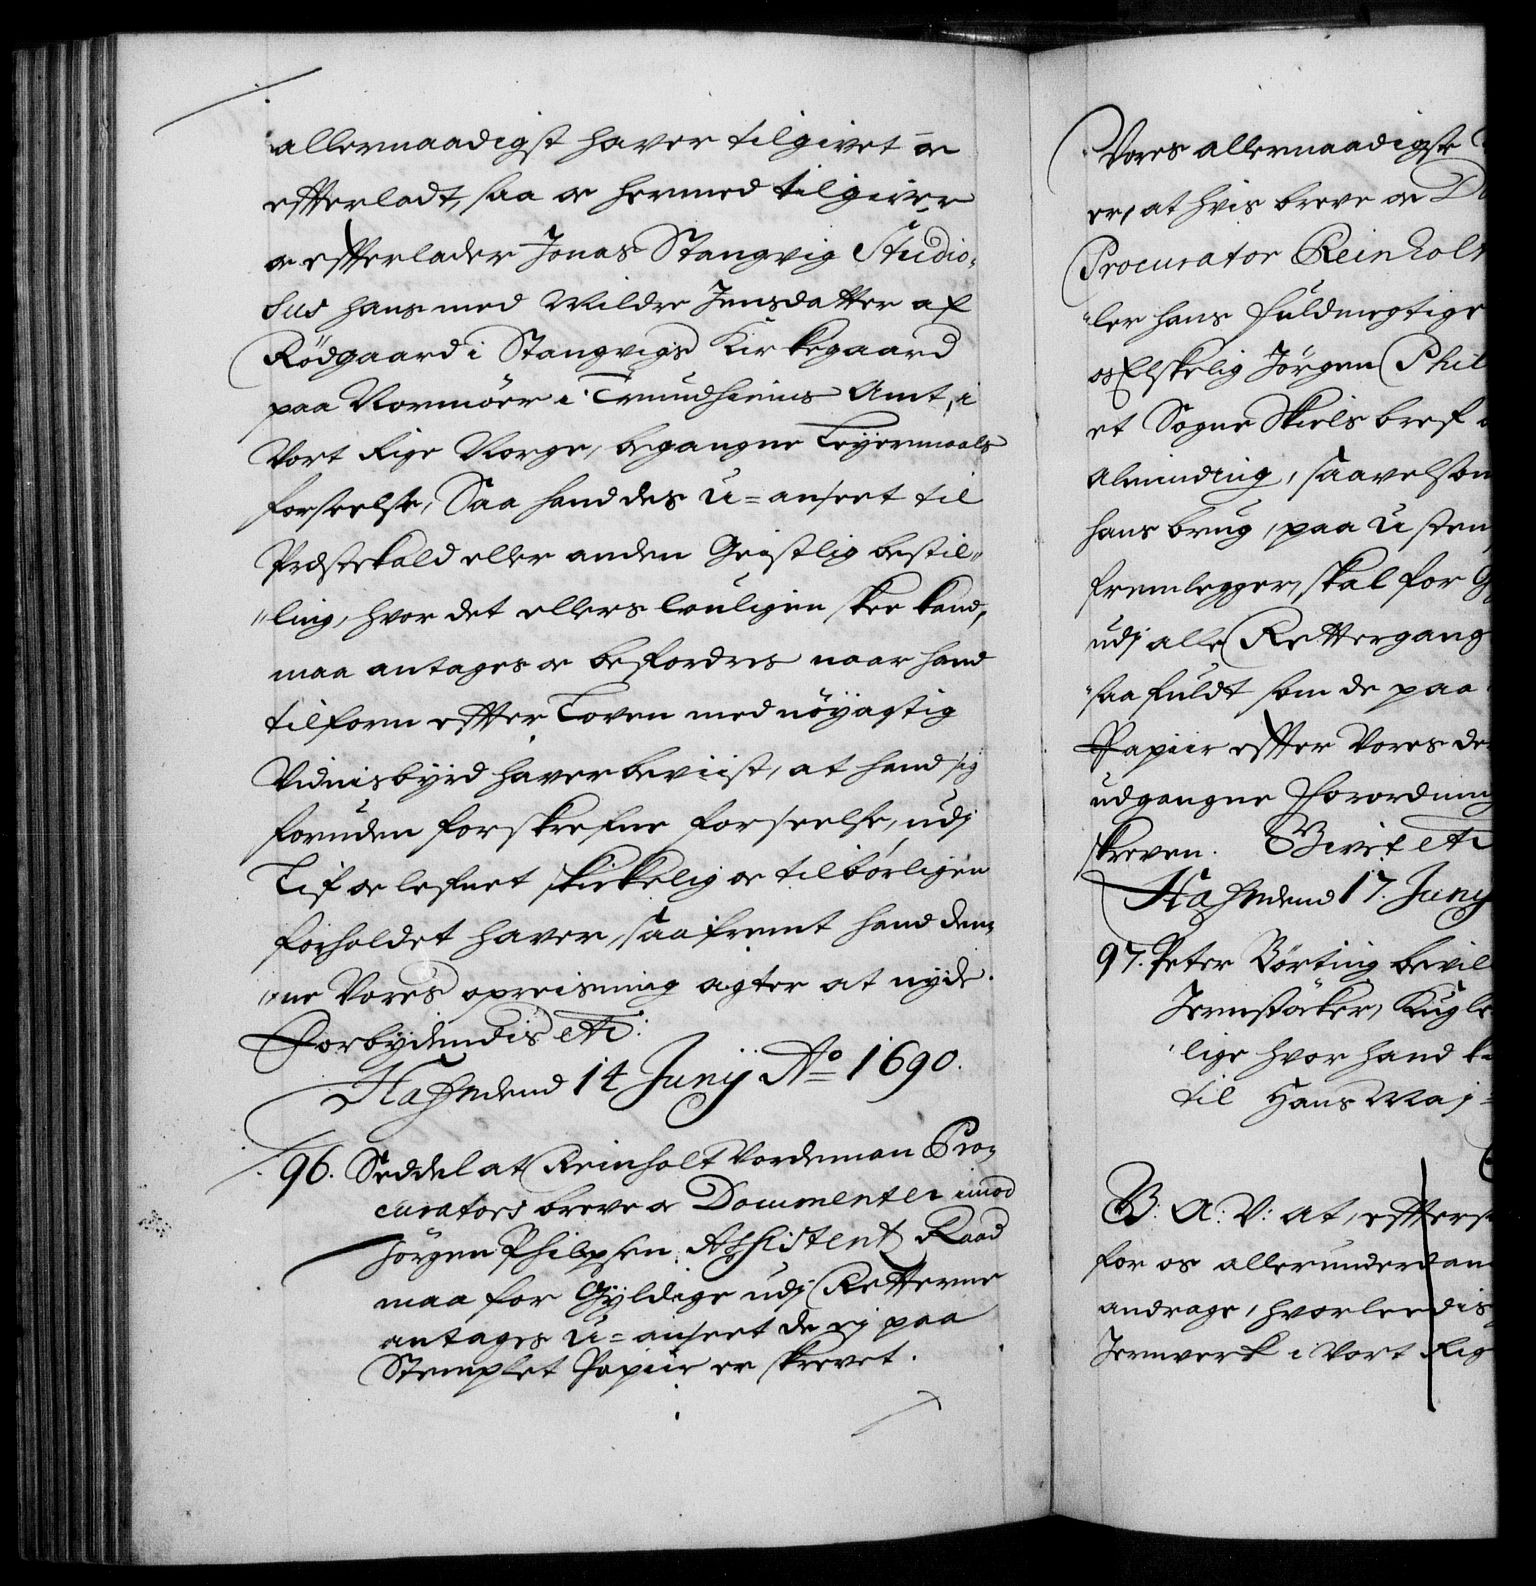 allernaadigst haver tilgivet oc
efterladt, saa oc hermed tilgiver
oc efterlader Jonas Stangvig Studio-
sus hans med Mildre Jensdatter af
Rödgaard i Stangvigs Kirkegaard
paa Normöer i Trundhiems Amt, i
Vort Rige Norge, begangne Leyermaals
forseelse, Saa hand des u=anseet til
Præstekald eller anden Geistlig bestil-
ling, hvor det ellers louligen skee kand,
maa antages oc befordres naar hand
tilforn efter Loven med nöyagtig
Vidnisbyrd haver beviist, at hand sig
foruden forskrefne forseelse, udj
Lif oc lefnet skickelig oc tilbörligen
forholdet haver, saa fremt hand den-
ne Vores opreisning agter at nyde.
Forbydendis etc:
Hafn den 14 Junij Ao 1690.
96. Seddel at Reinholt Vordeman Pro-
curators breve oc Documenter imod
Jörgen Philipsen Assistent Raad
maa for Gyldige udj Retterne
antages u=anseet de ej paa
Stemplet Papiir er skrevet.
Vores allernaadigste
er, at hvis breve oc
Procurator Reinholt
ler hans fuldmegtige
os Elskelig Jörgen Phil
et Sogne Skiels bref
Alminding, saavelsom
hans brug, paa u stem
fremlegger, skal for
udj alle Rettergang
saa fuldt som de paa
Papiir efter Vores
udgangne Forordning
skreven. Givet etc
Hafn den 17. Junij
97. Peter Börting bevil
Jernstöcker, Kugle
lige hvor hand
til Hans Maj
G: A: V: at, efters
for os allerunderdan
andrage, hvorleedis
Jernverk i Vort Rig